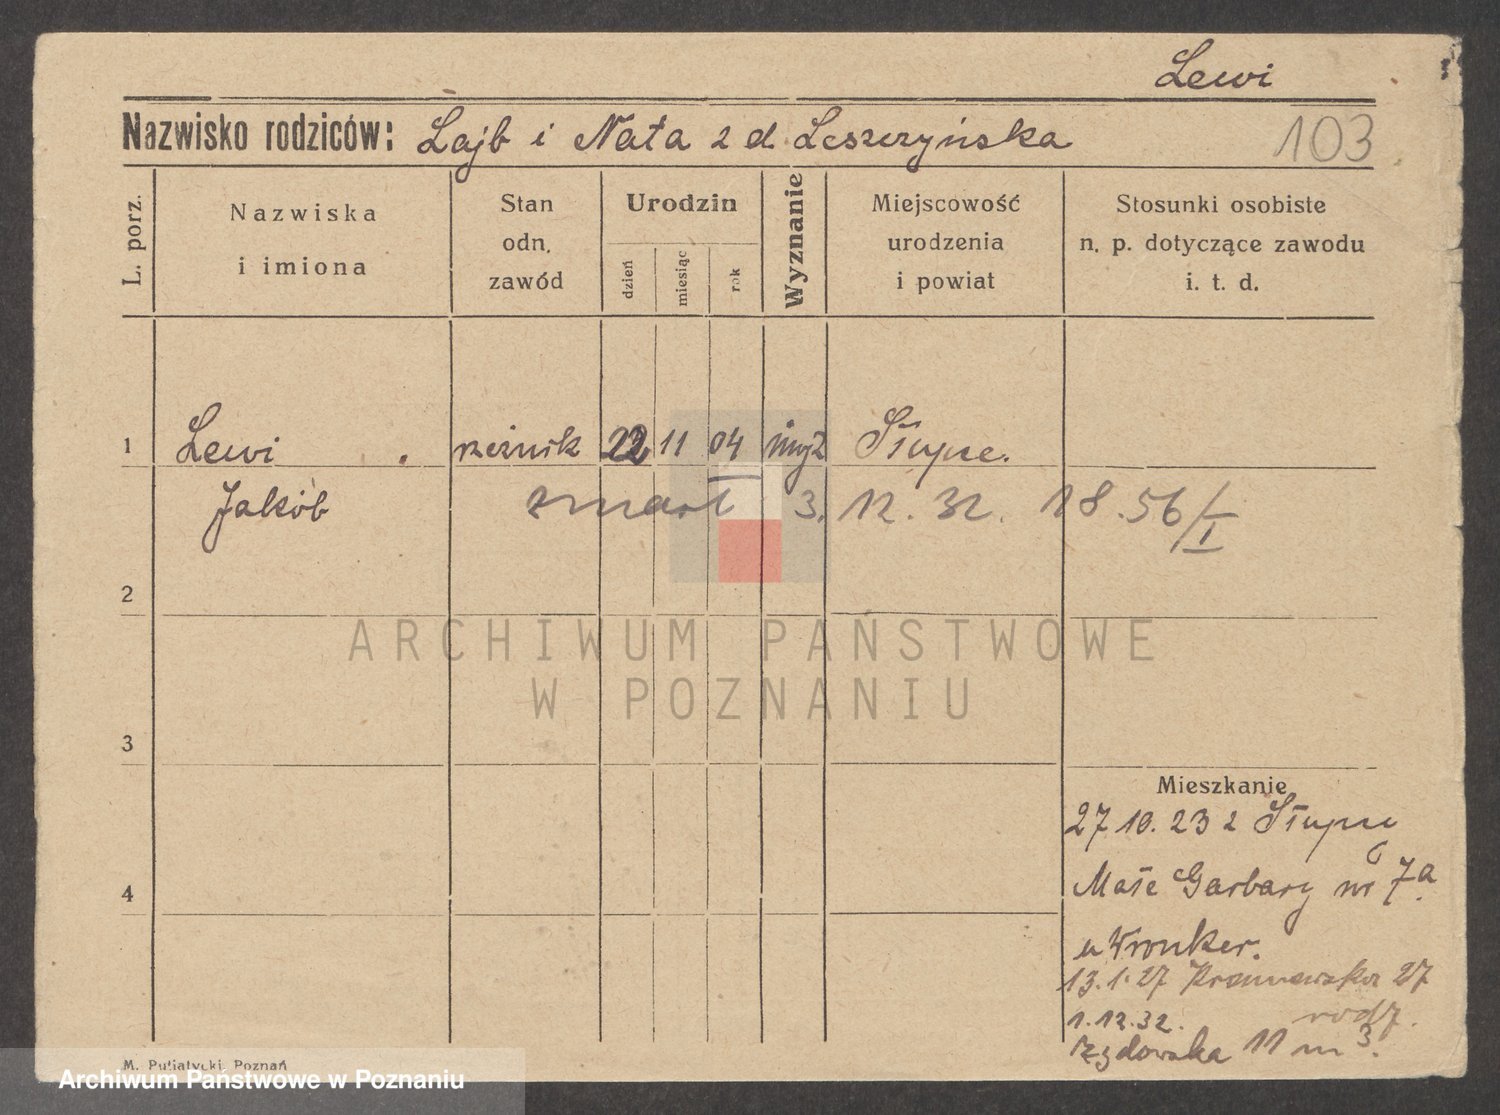 Lewi
Nazwisko rodziców: Lajb i Nata z d Leszczyńska
103
L. porz.
Nazwiska
i imiona
Stan
odn.
zawód
Urodzin
dzień
miesiąc
rok
Wyznanie
Miejscowość
urodzenia
i powiat
Stosunki osobiste
n. p. dotyczące zawodu
i. t. d.
1 Lewi rzeźnik 22 11 04 mojż Słupce.
Jakób zmarł 3. 12. 32. 18.56/I
2
ARCHIWUM PAŃSTWOWE
W POZNANIU
3
Mieszkanie
27 10. 23 z Słupcy
4
Małe Garbary nr 7a.
u Wronker.
13.1.27 27
rodz.
1.12.32.
Żydowska 11 m 3.
M. Putiatycki, Poznań
Archiwum Państwowe w Poznaniu